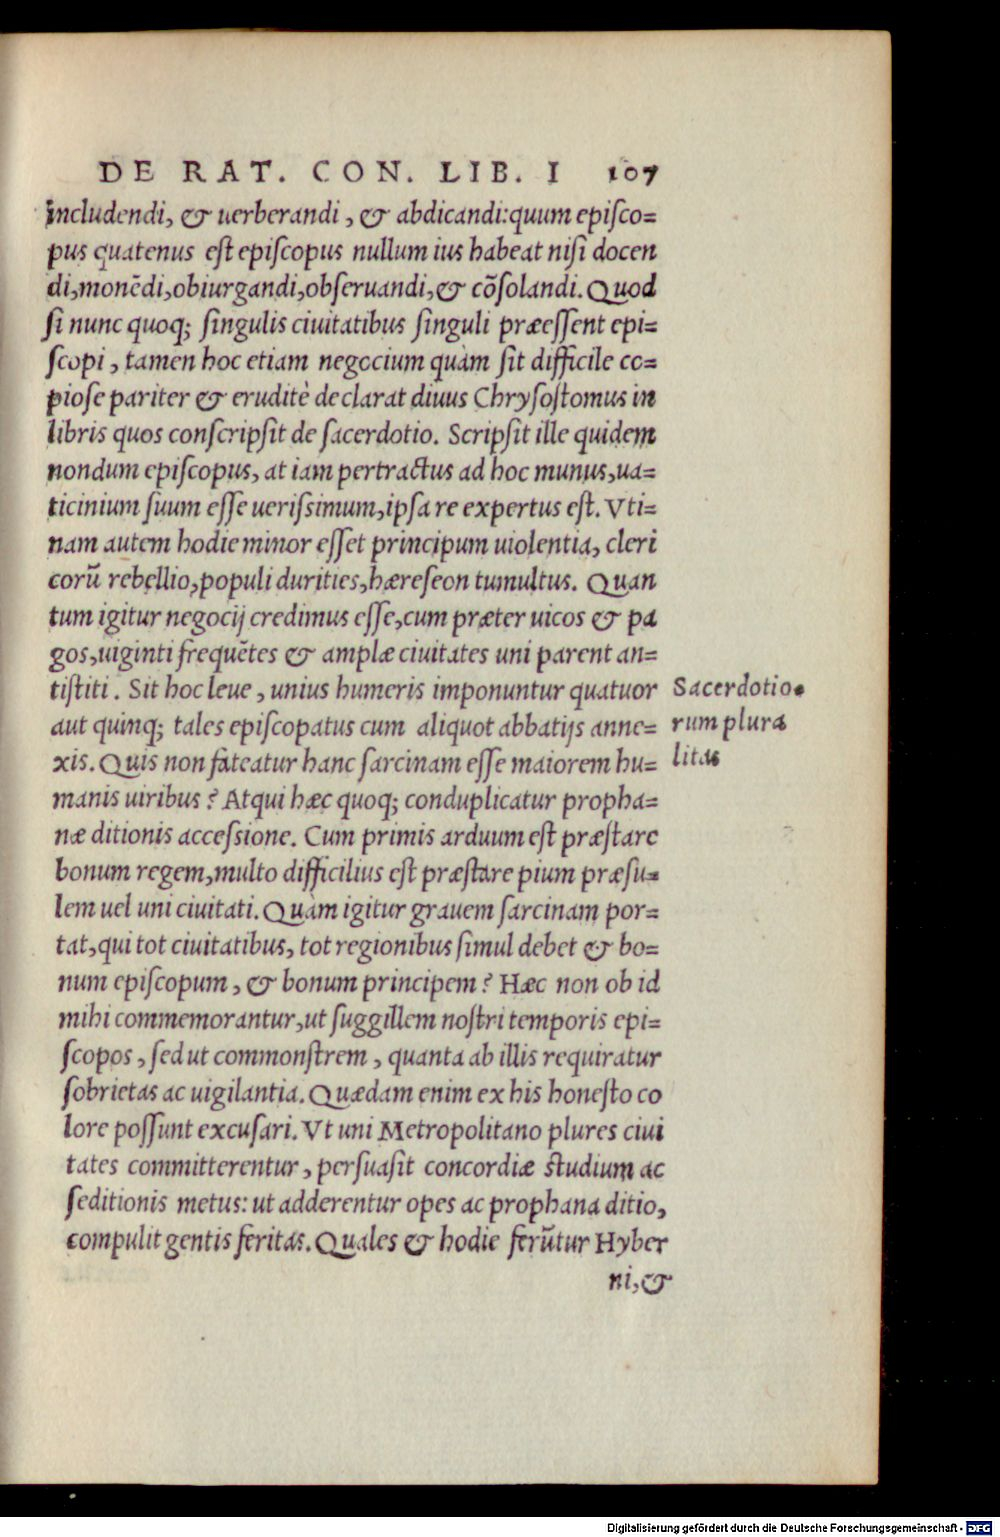 DE RAT. CON. LIB. I 107
includendi, & uerberandi, & abdicandi: quum episco=
pus quatenus est episcopus nullum ius habeat nisi docen
di, monēdi, obiurgandi, obseruandi, & cōsolandi. Quod
si nunc quoq; singulis ciuitatibus singuli præessent epi=
scopi, tamen hoc etiam negocium quàm sit difficile co=
piose pariter & eruditè declarat diuus Chrysostomus in
libris quos conscripsit de sacerdotio. Scripsit ille quidem
nondum episcopus, at iam pertractus ad hoc munus, ua=
ticinium suum esse uerissimum, ipsa re expertus est. Vti=
nam autem hodie minor esset principum uiolentia, cleri
corū rebellio, populi durities, hæreseon tumultus. Quan
tum igitur negocij credimus esse, cum præter uicos & pa
gos, uiginti frequētes & amplæ ciuitates uni parent an=
tistiti. Sit hoc leue, unius humeris imponuntur quatuor
aut quinq; tales episcopatus cum aliquot abbatijs anne=
xis. Quis non fateatur hanc sarcinam esse maiorem hu=
manis uiribus? Atqui hæc quoq; conduplicatur propha=
næ ditionis accessione. Cum primis arduum est præstare
bonum regem, multo difficilius est præstare pium præsu=
lem uel uni ciuitati. Quàm igitur grauem sarcinam por=
tat, qui tot ciuitatibus, tot regionibus simul debet & bo=
num episcopum, & bonum principem? Hæc non ob id
mihi commemorantur, ut suggillem nostri temporis epi=
scopos, sed ut commonstrem, quanta ab illis requiratur
sobrietas ac uigilantia. Quædam enim ex his honesto co
lore possunt excusari. Vt uni Metropolitano plures ciui
tates committerentur, persuasit concordiæ studium ac
seditionis metus: ut adderentur opes ac prophana ditio,
compulit gentis feritas. Quales & hodie ferūtur Hyber
ni, &
Sacerdotio=
rum plura
litas
Digitalisierung gefördert durch die Deutsche Forschungsgemeinschaft - DFG